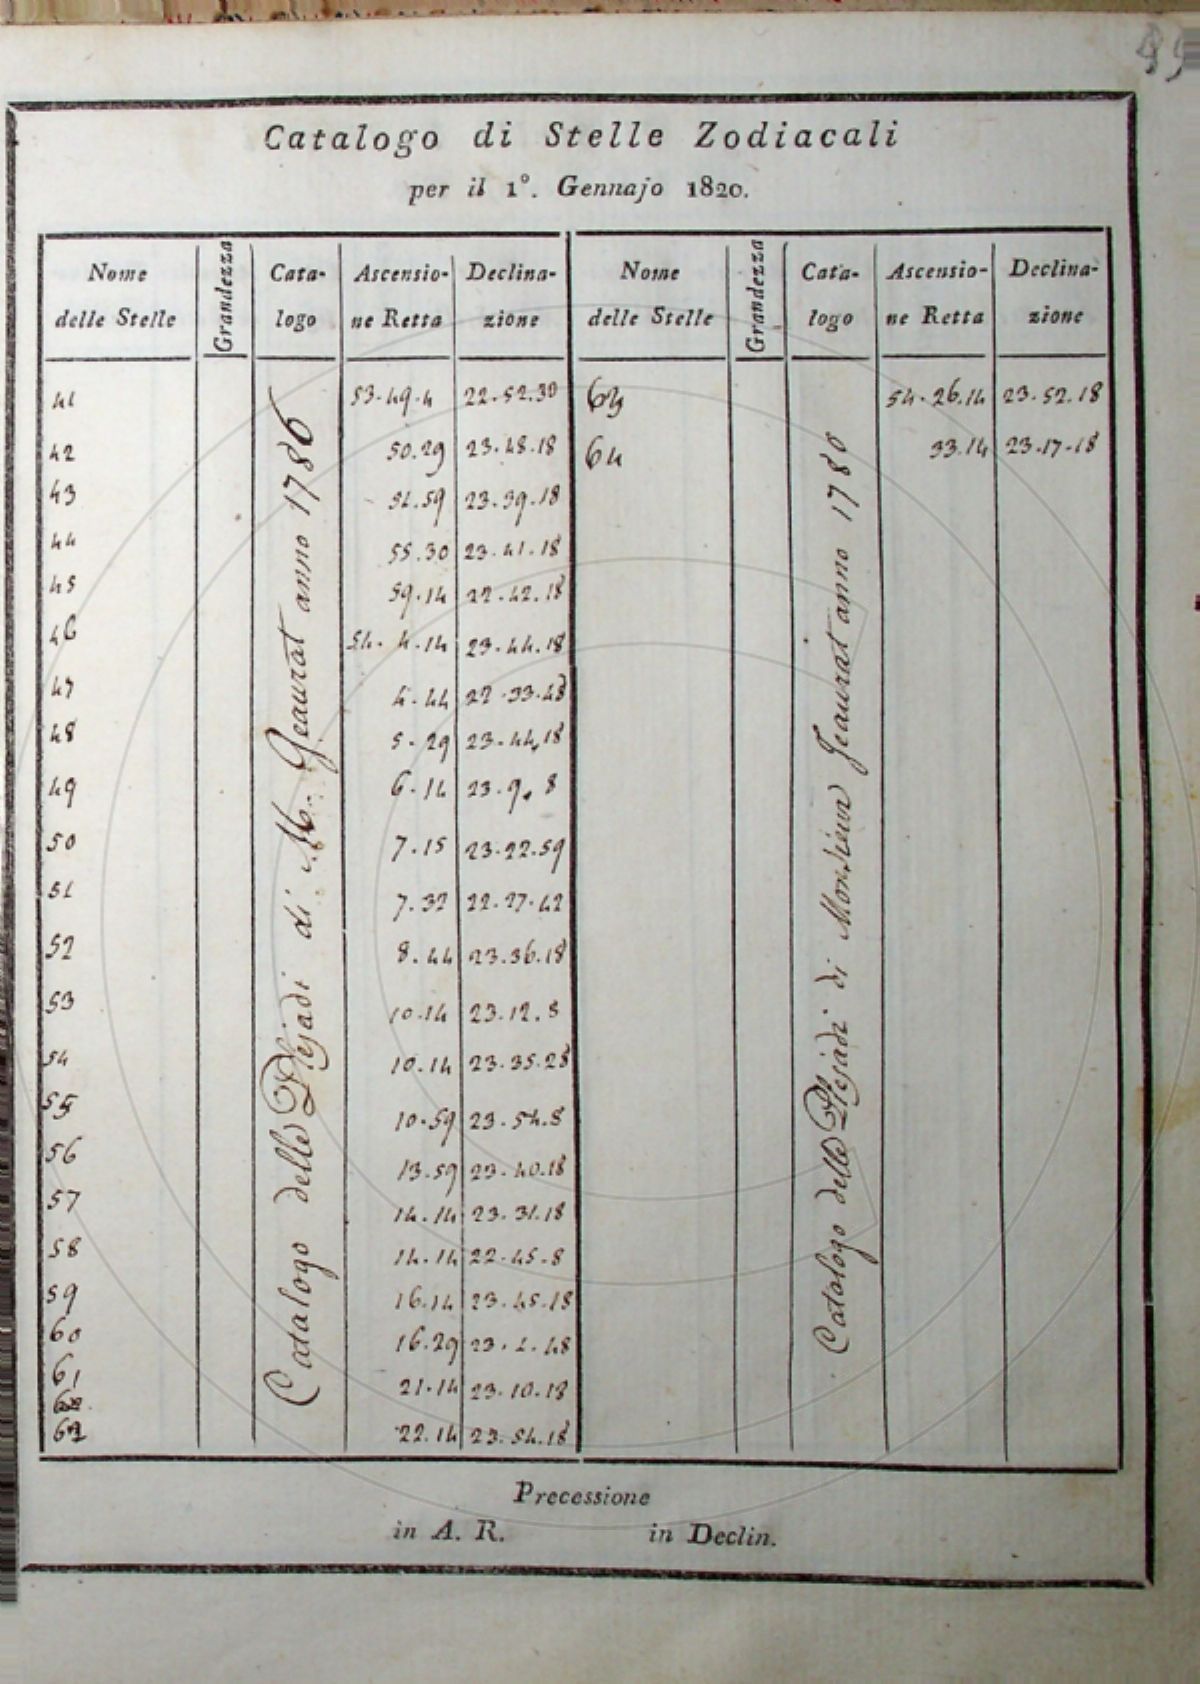 Catalogo di Stelle Zodiacali
per il 1°. Gennajo 1820.
Nome delle Stelle Grandezza Catalogo Ascensio-ne Retta Declina-zione Nome delle Stelle Grandezza Cata-logo Ascensio-ne Retta Declina-zione
41 53.49.4 22.52.30 63 54.26.14 23.52.18
42 50.29 23.48.18 64 33.14 23.17.18
43 51.59 23.39.18
44 55.30 23.41.18
45 59.14 22.42.18
46 54.4.14 23.44.18
47 4.44 22.33.48
48 5.29 23.44.18
49 6.14 23.9.8
50 7.15 23.22.59
51 7.32 22.27.42
52 8.44 23.36.18
53 10.14 23.12.8
54 10.14 23.35.28
55 10.59 23.54.8
56 13.59 23.40.18
57 14.14 23.31.18
58 14.14 22.45.8
59 16.14 23.45.18
60 16.29 23.1.48
61 21.14 23.10.18
62 22.14 23.54.18
Catalogo delle Plejadi di M. Geaurat anno 1786
Catologo delle Plejadi di Monsieur Jeaurat anno 1780
Precessione
in A. R. in Declin.